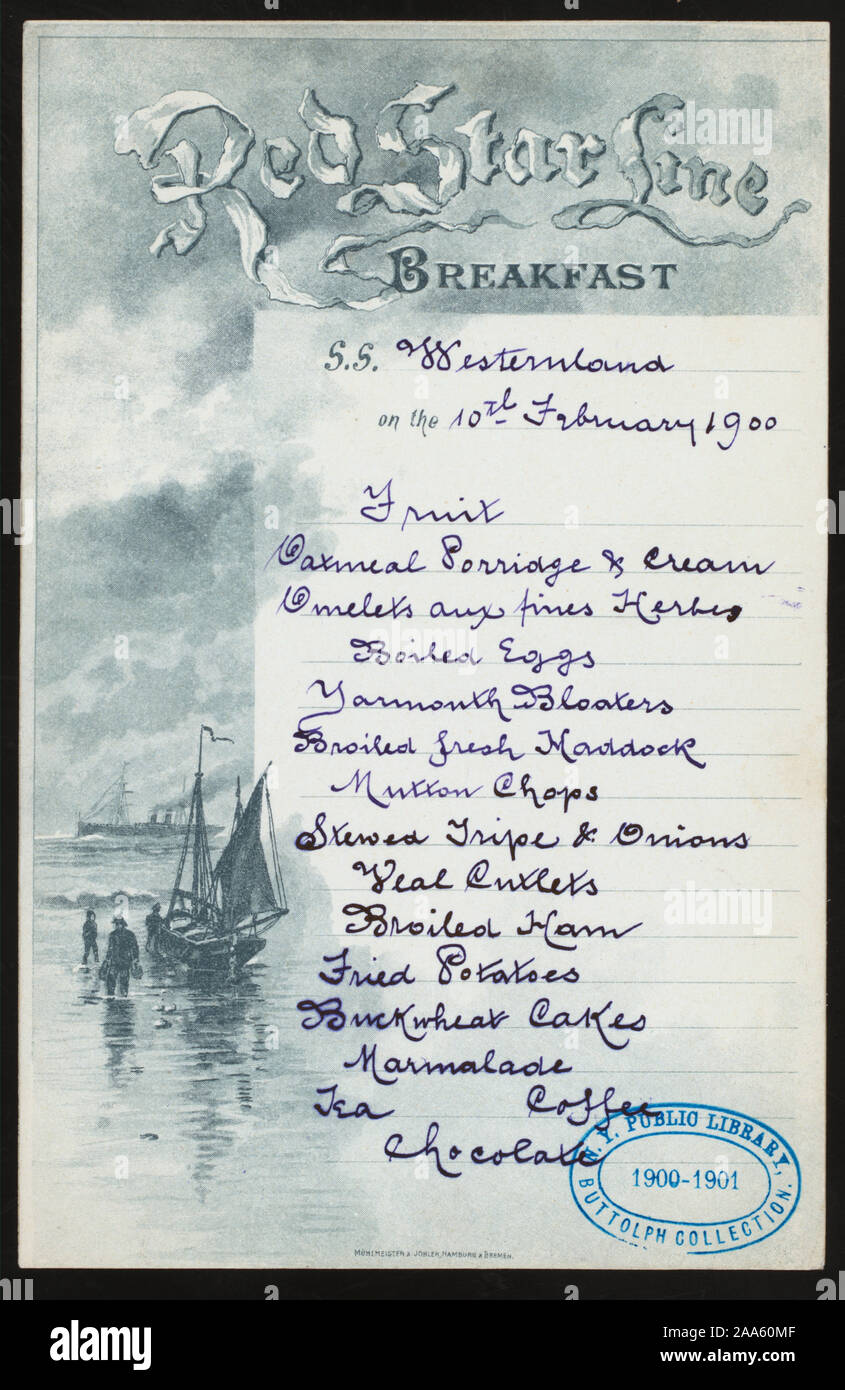 Red Star Line
BREAKFAST
S.S. Westernland
on the 10th February 1900
Fruit
Oatmeal Porridge & Cream
Omelets aux fines Herbes
Boiled Eggs
Yarmouth Bloaters
Broiled fresh Haddock
Mutton Chops
Stewed Tripe & Onions
Veal Cutlets
Broiled Ham
Fried Potatoes
Buckwheat Cakes
Marmalade
Tea Coffee
Chocolate
N. Y. PUBLIC LIBRARY,
1900-1901
BUTTOLPH COLLECTION.
MÜHLMEISTER & JOHLER, HAMBURG & BREMEN.
alamy
alamy
Image ID: 2AA60MF
www.alamy.com